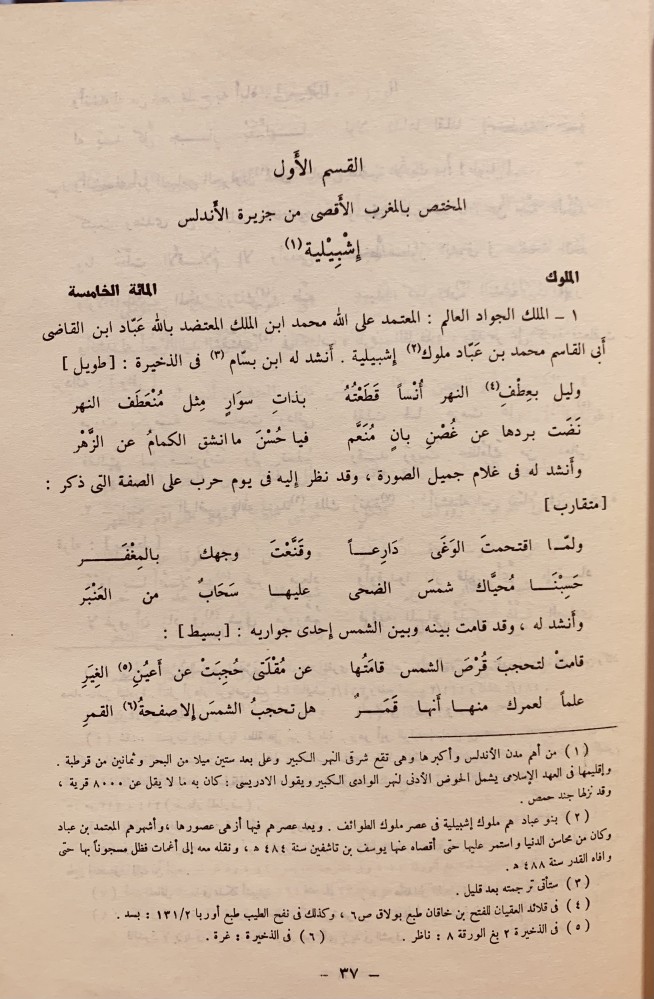 القسم الأَول
المختص بالمغرب الأَقصى من جزيرة الأَندلس
إِشْبِيْلية (١)
الملوك
المائة الخامسة
١ - الملك الجواد العالم : المعتمد على الله محمد ابن الملك المعتضد بالله عَبّاد ابن القاضى
أَبى القاسم محمد بن عَبّاد ملوك(٢) إشبيلية . أَنشد له ابن بسّام (٣) فى الذخيرة : [ طويل ]
وليل بعِطْفِ(٤) النهر أُنْساً قَطَعْتُهُ بذاتِ سوَارٍ مِثل مُنْعَطَف النهر
نَضَت بردها عن غُصْنِ بانٍ مُنَعَّم فيا حُسْنَ ما انشق الكمامُ عن الزَّهْر
وأَنشد له فى غلام جميل الصورة ، وقد نظر إليه فى يوم حرب على الصفة التى ذكر :
[ متقارب ]
ولمّا اقتحمتَ الوَغَى دَارِعاً وقَنَّعْتَ وجهك بالمِغْفَر
حَسِبْنَا مُحيَّاك شمسَ الضحى عليها سَحَابٌ من العَنْبَر
وأَنشد له ، وقد قامت بينه وبين الشمس إحدى جواريه : [ بسيط ] :
قامتْ لتحجبَ قُرْصَ الشمس قامَتُها عن مُقْلَتى حُجِبَتْ عن أَعيُنِ(٥) الغِيَرِ
علماً لعمرك منها أَنها قَمَرٌ هل تحجبُ الشمسَ إلا صفحةُ(٦) القمرِ
(١) من أهم مدن الأندلس وأكبرها وهى تقع شرقى النهر الكبير وعلى بعد ستين ميلا من البحر وثمانين من قرطبة .
وإقليمها فى العهد الإسلامى يشمل الحوض الأدنى لنهر الوادى الكبير ويقول الادريسى : كان به ما لا يقل عن ٨٠٠٠ قرية ،
وقد نزلها جند حمص .
(٢) بنو عباد هم ملوك إشبيلية فى عصر ملوك الطوائف . ويعد عصرهم فيها أزهى عصورها ، وأشهرهم المعتمد بن عباد
وكان من محاسن الدنيا واستمر عليها حتى أقصاه عنها يوسف بن تاشفين سنة ٤٨٤ هـ ، ونقله معه إلى أغمات فظل مسجوناً بها حتى
وافاه القدر سنة ٤٨٨ هـ .
(٣) ستأتى ترجمته بعد قليل .
(٤) فى قلائد العقيان للفتح بن خاقان طبع بولاق ص ٦ ، وكذلك فى نفح الطيب طبع أوربا ١٣١/٢ : بسد .
(٥) فى الذخيرة ٢ بغ الورقة ٨ : ناظر . (٦) فى الذخيرة : غرة .
- ٣٧ -